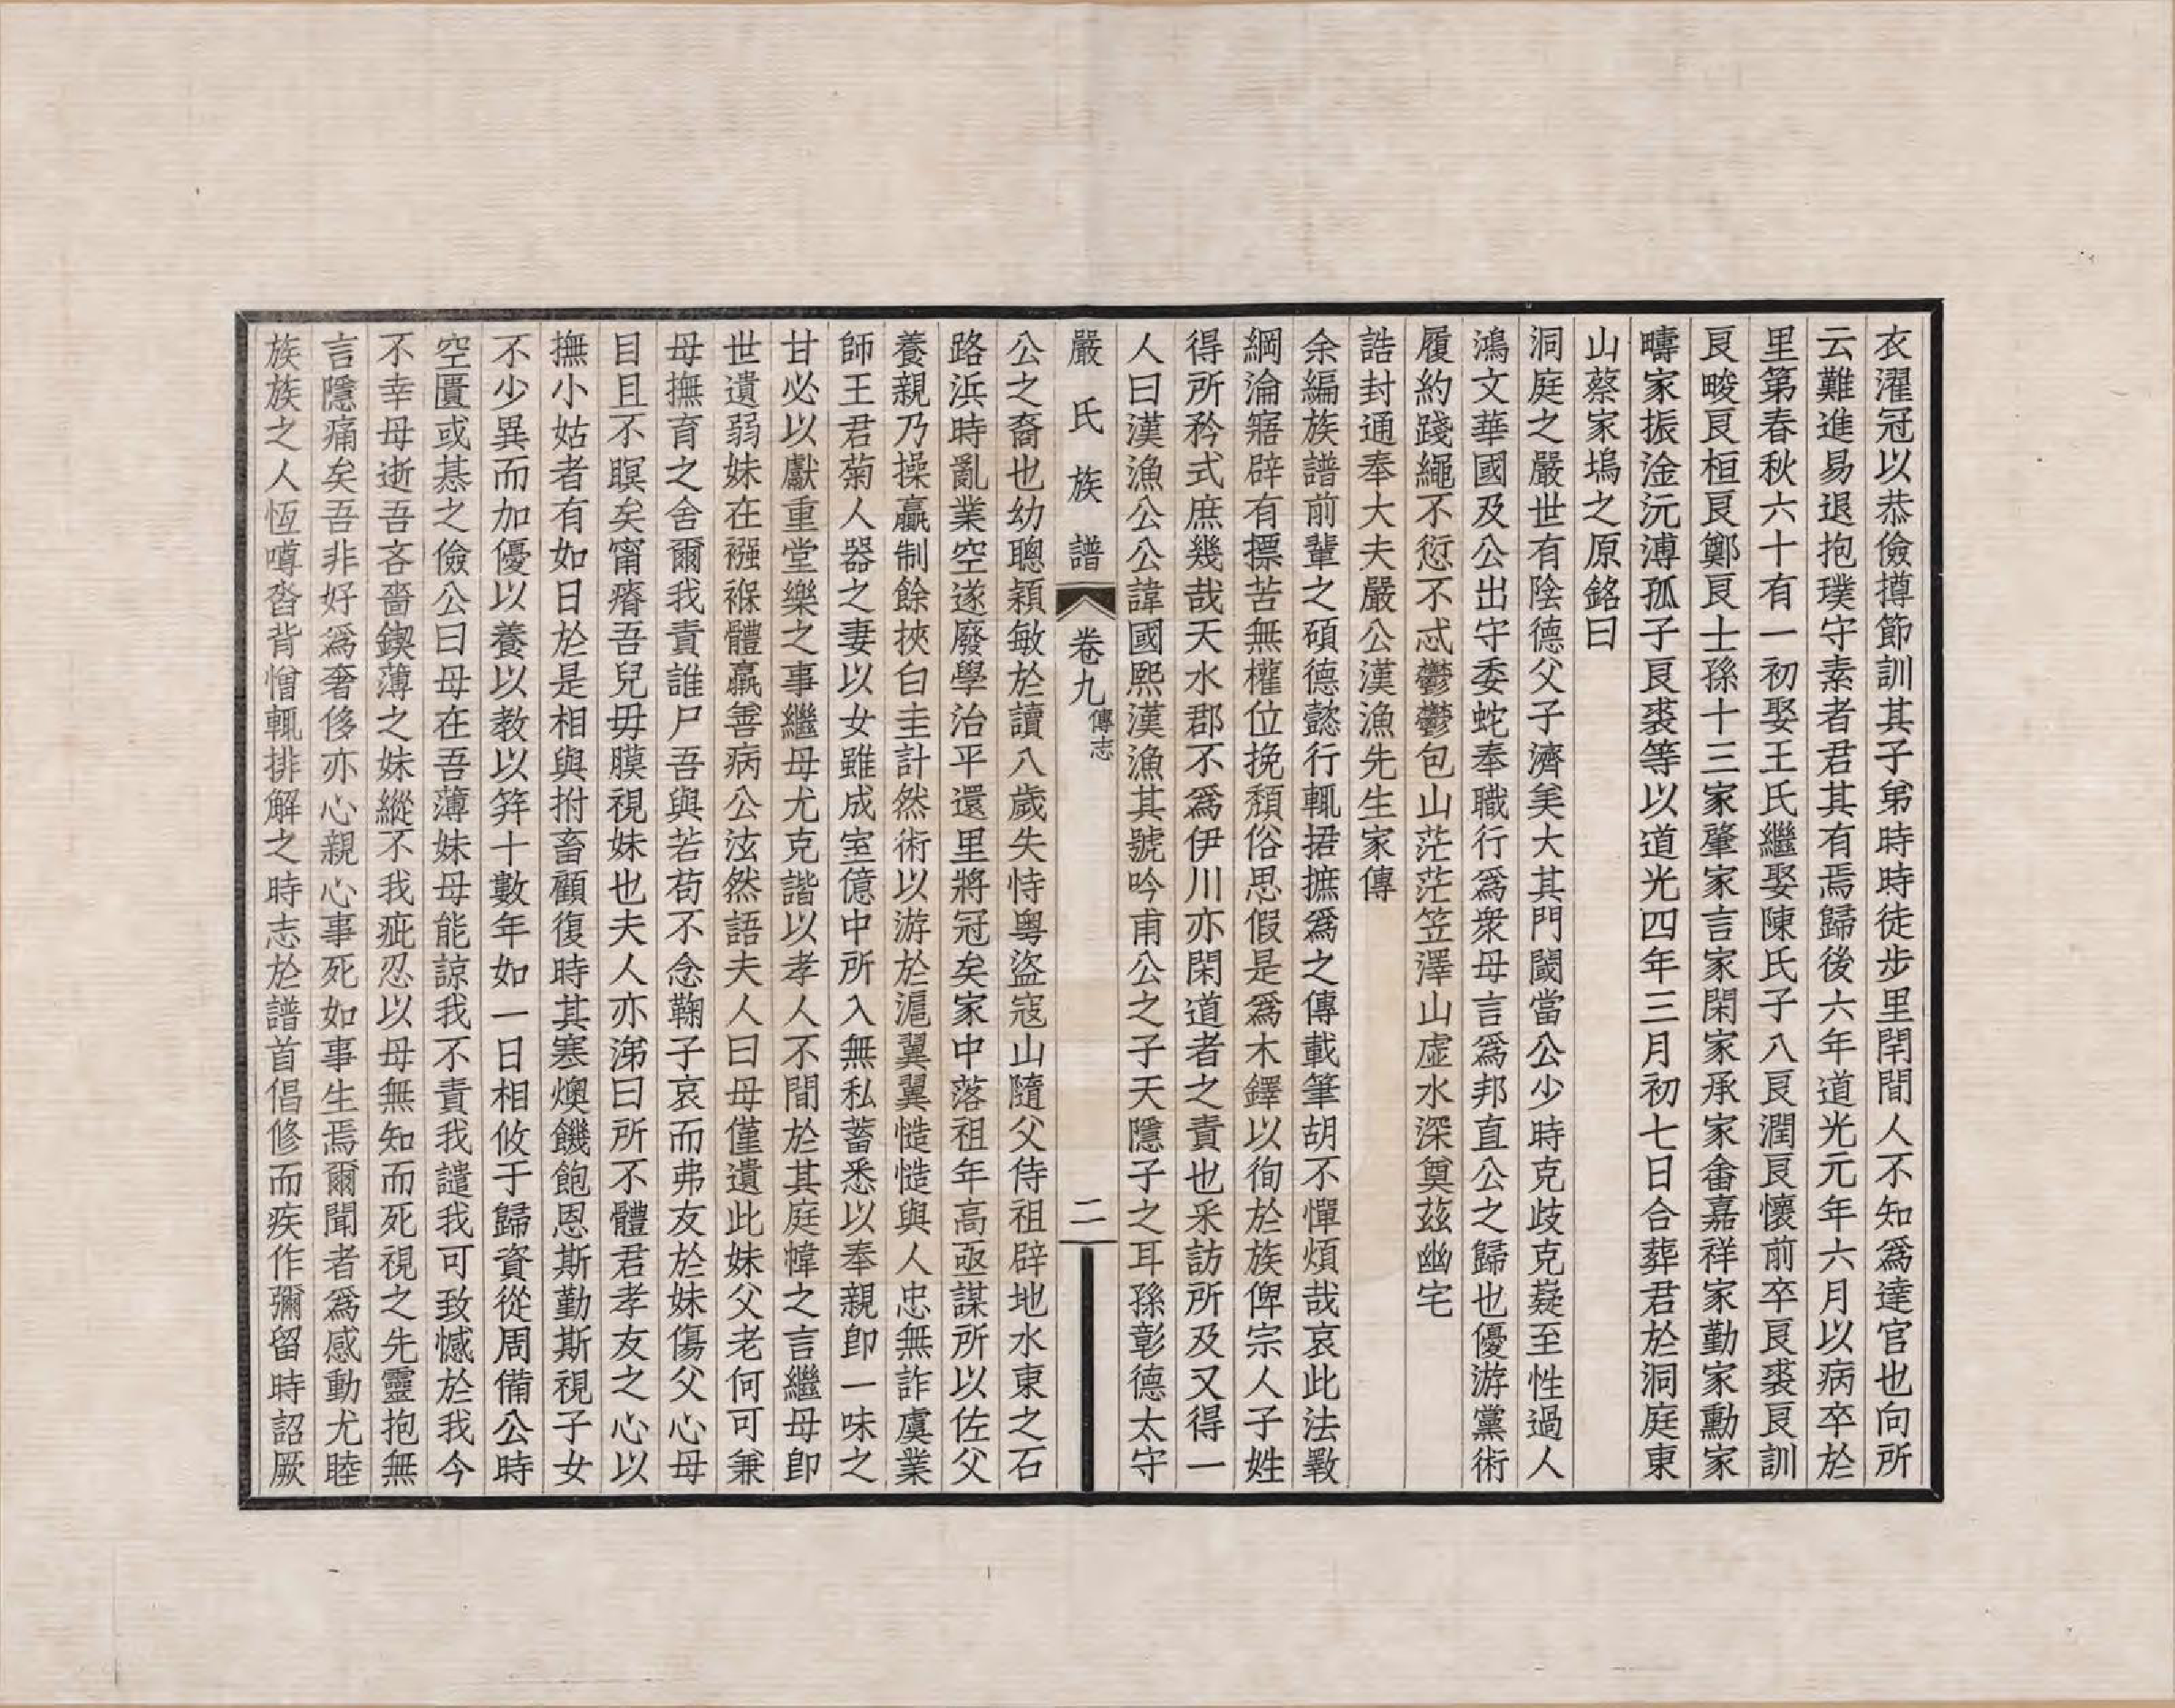 衣濯冠以恭儉撙節訓其子弟時時徒步里閈間人不知爲達官也向所
云難進易退抱璞守素者君其有焉歸後六年道光元年六月以病卒於
里第春秋六十有一初娶王氏繼娶陳氏子八良潤良懷前卒良裘良訓
良畯良桓良鄭良士孫十三家肇家言家閑家承家畬嘉祥家勤家勳家
疇家振淦沅溥孤子良裘等以道光四年三月初七日合葬君於洞庭東
山蔡家塢之原銘曰
洞庭之嚴世有陰德父子濟美大其門閾當公少時克歧克嶷至性過人
鴻文華國及公出守委蛇奉職行爲衆母言爲邦直公之歸也優游黨術
履約踐繩不愆不忒鬱鬱包山茫茫笠澤山虛水深奠茲幽宅
誥封通奉大夫嚴公漢漁先生家傳
余編族譜前輩之碩德懿行輒捃摭爲之傳載筆胡不憚煩哉哀此法斁
綱淪寤辟有摽苦無權位挽頹俗思假是爲木鐸以徇於族俾宗人子姓
得所矜式庶幾哉天水郡不爲伊川亦閑道者之責也采訪所及又得一
人曰漢漁公公諱國熙漢漁其號吟甫公之子天隱子之耳孫彰德太守
嚴氏族譜 卷九 傳志 二
公之裔也幼聰穎敏於讀八歲失恃粵盜寇山隨父侍祖辟地水東之石
路浜時亂業空遂廢學治平還里將冠矣家中落祖年高亟謀所以佐父
養親乃操贏制餘挾白圭計然術以游於滬翼翼慥慥與人忠無詐虞業
師王君菊人器之妻以女雖成室億中所入無私蓄悉以奉親卽一味之
甘必以獻重堂樂之事繼母尤克諧以孝人不間於其庭幃之言繼母卽
世遺弱妹在襁褓體羸善病公泫然語夫人曰母僅遺此妹父老何可兼
母撫育之舍爾我責誰尸吾與若苟不念鞠子哀而弗友於妹傷父心母
目且不瞑矣甯瘠吾兒毋膜視妹也夫人亦涕曰所不體君孝友之心以
撫小姑者有如日於是相與拊畜顧復時其寒燠饑飽恩斯勤斯視子女
不少異而加優以養以教以笄十數年如一日相攸于歸資從周備公時
空匱或惎之儉公曰母在吾薄妹母能諒我不責我譴我可致憾於我今
不幸母逝吾吝嗇鍥薄之妹縱不我疵忍以母無知而死視之先靈抱無
言隱痛矣吾非好爲奢侈亦心親心事死如事生焉爾聞者爲感動尤睦
族族之人恆噂沓背憎輒排解之時志於譜首倡修而疾作彌留時詔厥